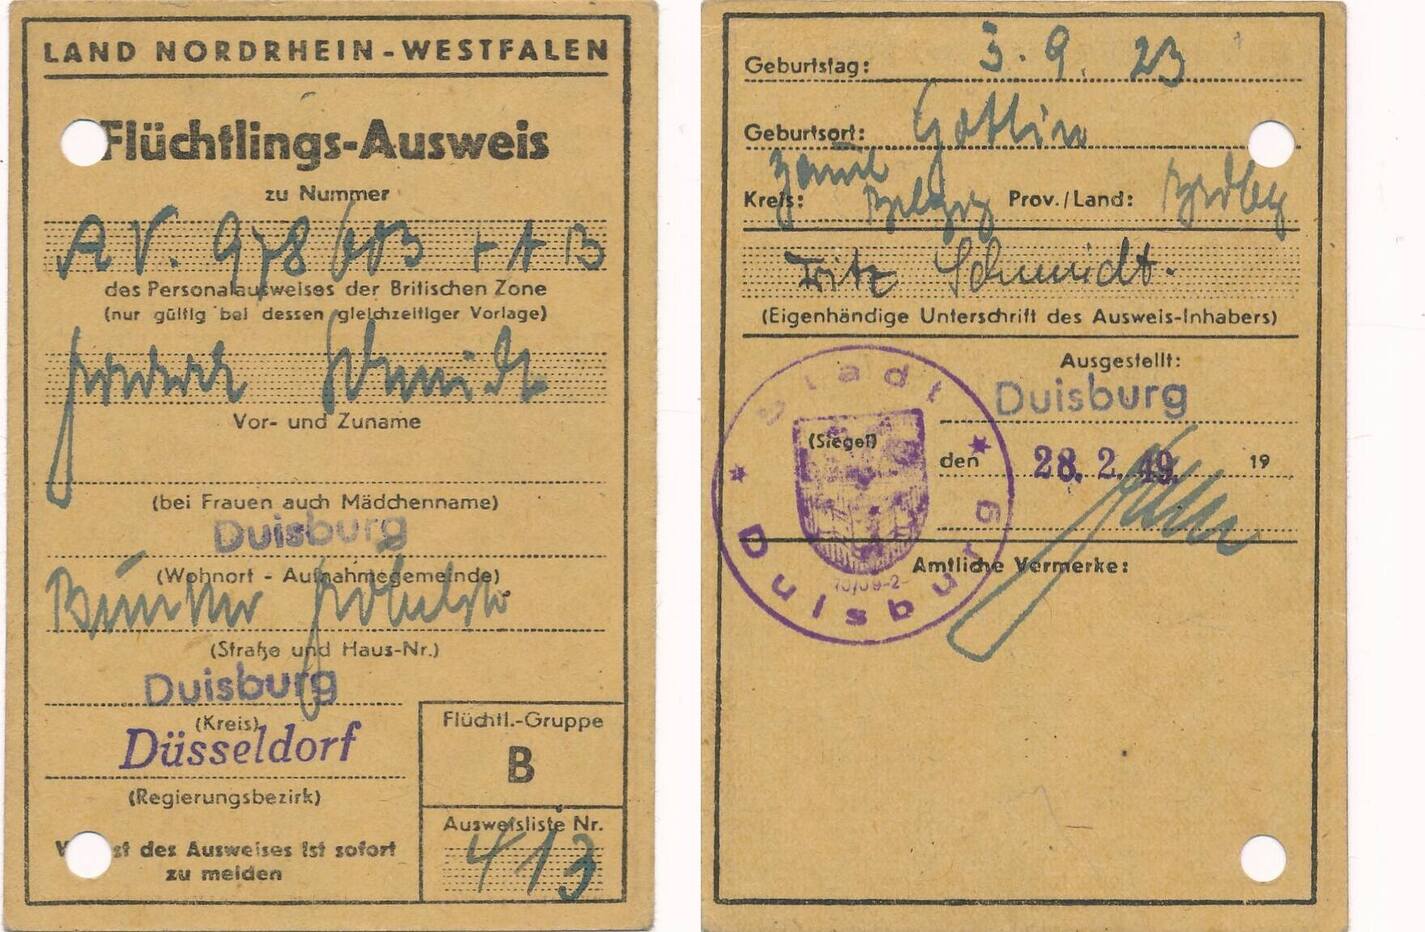 LAND NORDRHEIN-WESTFALEN
Flüchtlings-Ausweis
zu Nummer
AV. 978603 + 1 B
des Personalausweises der Britischen Zone
(nur gültig bei dessen gleichzeitiger Vorlage)
Schmidt
Vor- und Zuname
(bei Frauen auch Mädchenname)
Duisburg
(Wohnort - Aufnahmegemeinde)
(Straße und Haus-Nr.)
Duisburg
(Kreis)
Düsseldorf
(Regierungsbezirk)
Flüchtl.-Gruppe
B
Ausweisliste Nr.
413
st des Ausweises ist sofort
zu melden
Geburtstag: 3. 9. 23
Geburtsort: Göttin
Kreis: Prov./Land:
Fritz Schmidt.
(Eigenhändige Unterschrift des Ausweis-Inhabers)
Ausgestellt:
Duisburg
(Siegel)
den 28. 2. 49. 19
Stadt Duisburg
Amtliche Vermerke: